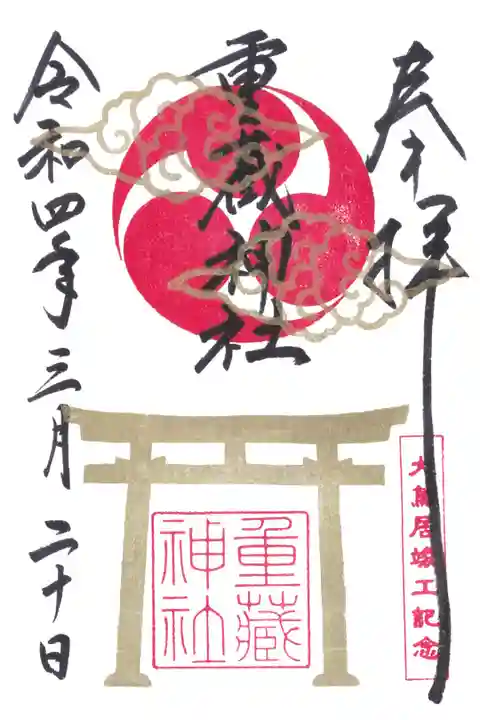 奉拝
大鳥居竣工記念
重蔵神社
重蔵神社
令和四年三月二十日